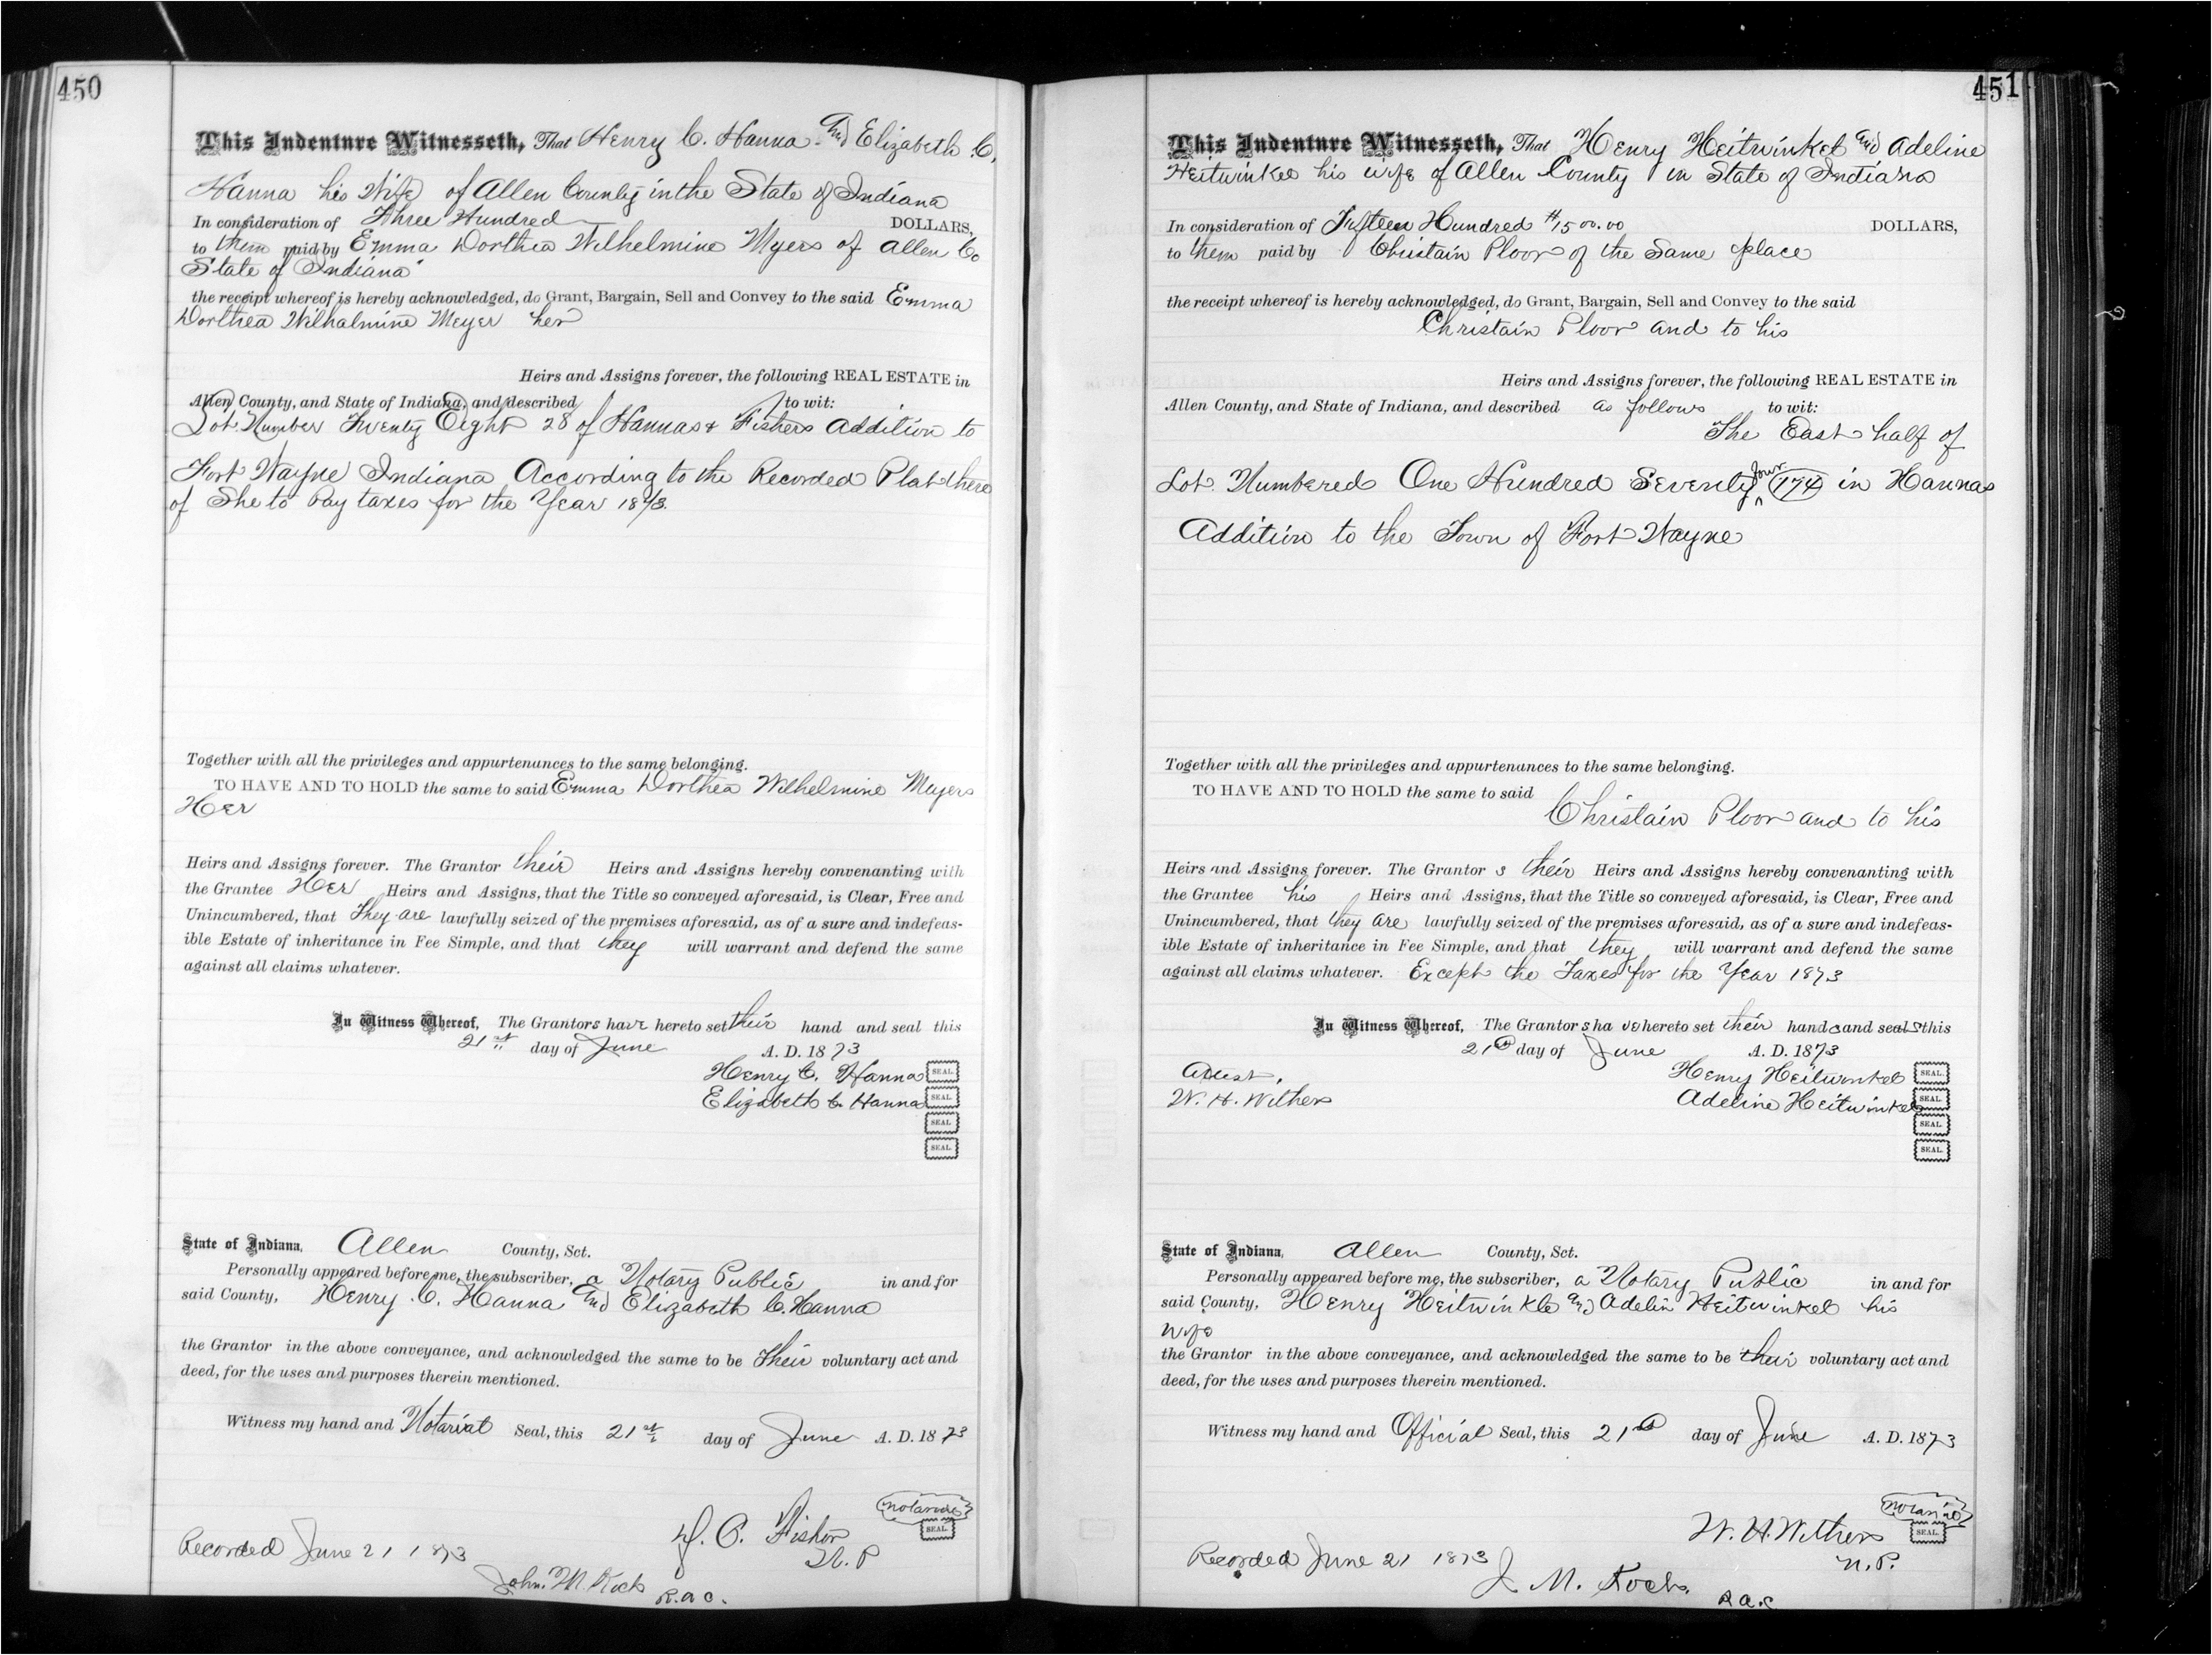 450
This Indenture Witnesseth, That Henry C. Hanna and Elizabeth C.
Hanna his Wife of Allen County in the State of Indiana
In consideration of Three Hundred DOLLARS,
to them paid by Emma Dorthea Wilhelmine Myers of Allen Co
State of Indiana
the receipt whereof is hereby acknowledged, do Grant, Bargain, Sell and Convey to the said Emma
Dorthea Wilhalmine Meyer her
Heirs and Assigns forever, the following REAL ESTATE in
Allen County, and State of Indiana, and described to wit:
Lot Number Twenty Eight 28 of Hannas & Fishers Addition to
Fort Wayne Indiana According to the Recorded Plat there
of She to Pay taxes for the Year 1873.
Together with all the privileges and appurtenances to the same belonging.
TO HAVE AND TO HOLD the same to said Emma Dorthea Wilhelmine Meyers
Her
Heirs and Assigns forever. The Grantor their Heirs and Assigns hereby convenanting with
the Grantee Her Heirs and Assigns, that the Title so conveyed aforesaid, is Clear, Free and
Unincumbered, that They are lawfully seized of the premises aforesaid, as of a sure and indefeas-
ible Estate of inheritance in Fee Simple, and that they will warrant and defend the same
against all claims whatever.
In Witness Whereof, The Grantors have hereto set their hand and seal this
21st day of June A. D. 1873
Henry C. Hanna SEAL.
Elizabeth C. Hanna SEAL.
SEAL.
SEAL.
State of Indiana, Allen County, Sct.
Personally appeared before me, the subscriber, a Notary Public in and for
said County, Henry C. Hanna and Elizabeth C. Hanna
the Grantor in the above conveyance, and acknowledged the same to be Their voluntary act and
deed, for the uses and purposes therein mentioned.
Witness my hand and Notarial Seal, this 21st day of June A. D. 1873
notarial SEAL.
D. C. Fisher
N. P
Recorded June 21 1873
John. M. Koch
R. a c.
451
This Indenture Witnesseth, That Henry Heitwinkel and Adeline
Heitwinkel his wife of Allen County in State of Indiana
In consideration of Fifteen Hundred $1500.00 DOLLARS,
to them paid by Christain Ploor of the Same place
the receipt whereof is hereby acknowledged, do Grant, Bargain, Sell and Convey to the said
Christain Ploor and to his
Heirs and Assigns forever, the following REAL ESTATE in
Allen County, and State of Indiana, and described as follows to wit:
The East half of
Lot Numbered One Hundred Seventy four (174) in Hannas
Addition to the Town of Fort Wayne
Together with all the privileges and appurtenances to the same belonging.
TO HAVE AND TO HOLD the same to said
Christain Ploor and to his
Heirs and Assigns forever. The Grantor s their Heirs and Assigns hereby convenanting with
the Grantee his Heirs and Assigns, that the Title so conveyed aforesaid, is Clear, Free and
Unincumbered, that they are lawfully seized of the premises aforesaid, as of a sure and indefeas-
ible Estate of inheritance in Fee Simple, and that they will warrant and defend the same
against all claims whatever. Except the Taxes for the Year 1873
In Witness Whereof, The Grantor s ha ve hereto set their hands and seals this
21st day of June A. D. 1873
Attest. Henry Heitwinkel SEAL.
W. H. Withers Adeline Heitwinkel SEAL.
SEAL.
SEAL.
State of Indiana, Allen County, Sct.
Personally appeared before me, the subscriber, a Notary Public in and for
said County, Henry Heitwinkle and Adelin Heitwinkel his
wife
the Grantor in the above conveyance, and acknowledged the same to be their voluntary act and
deed, for the uses and purposes therein mentioned.
Witness my hand and Official Seal, this 21st day of June A. D. 1873
Notarial SEAL.
W. H. Withers
N. P.
Recorded June 21 1873
J. M. Koch.
R a. c